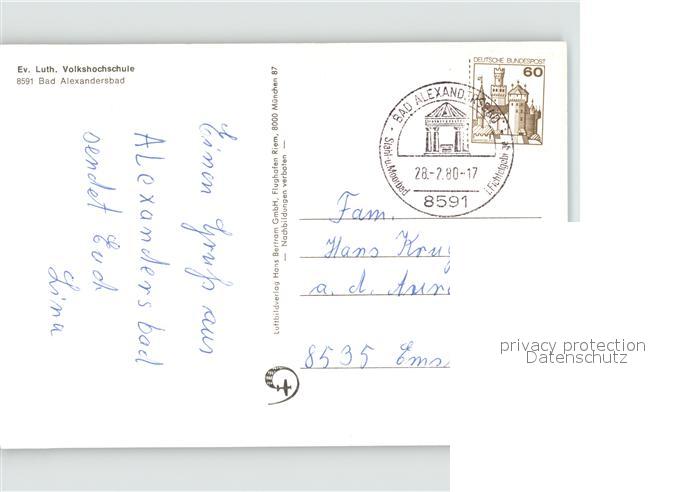 Ev. Luth. Volkshochschule
8591 Bad Alexandersbad
Einen Gruß aus
Alexandersbad
sendet Euch
Lina
Luftbildverlag Hans Bertram GmbH, Flughafen Riem, 8000 München 87
— Nachbildungen verboten —
DEUTSCHE BUNDESPOST
60
BAD ALEXANDERSBAD
Stahl-u. Moorbad
i. Fichtelgebirge
28.-2.80-17
8591
Fam.
Hans Kru
a. d. Aur
8535 Ems
privacy protection
Datenschutz